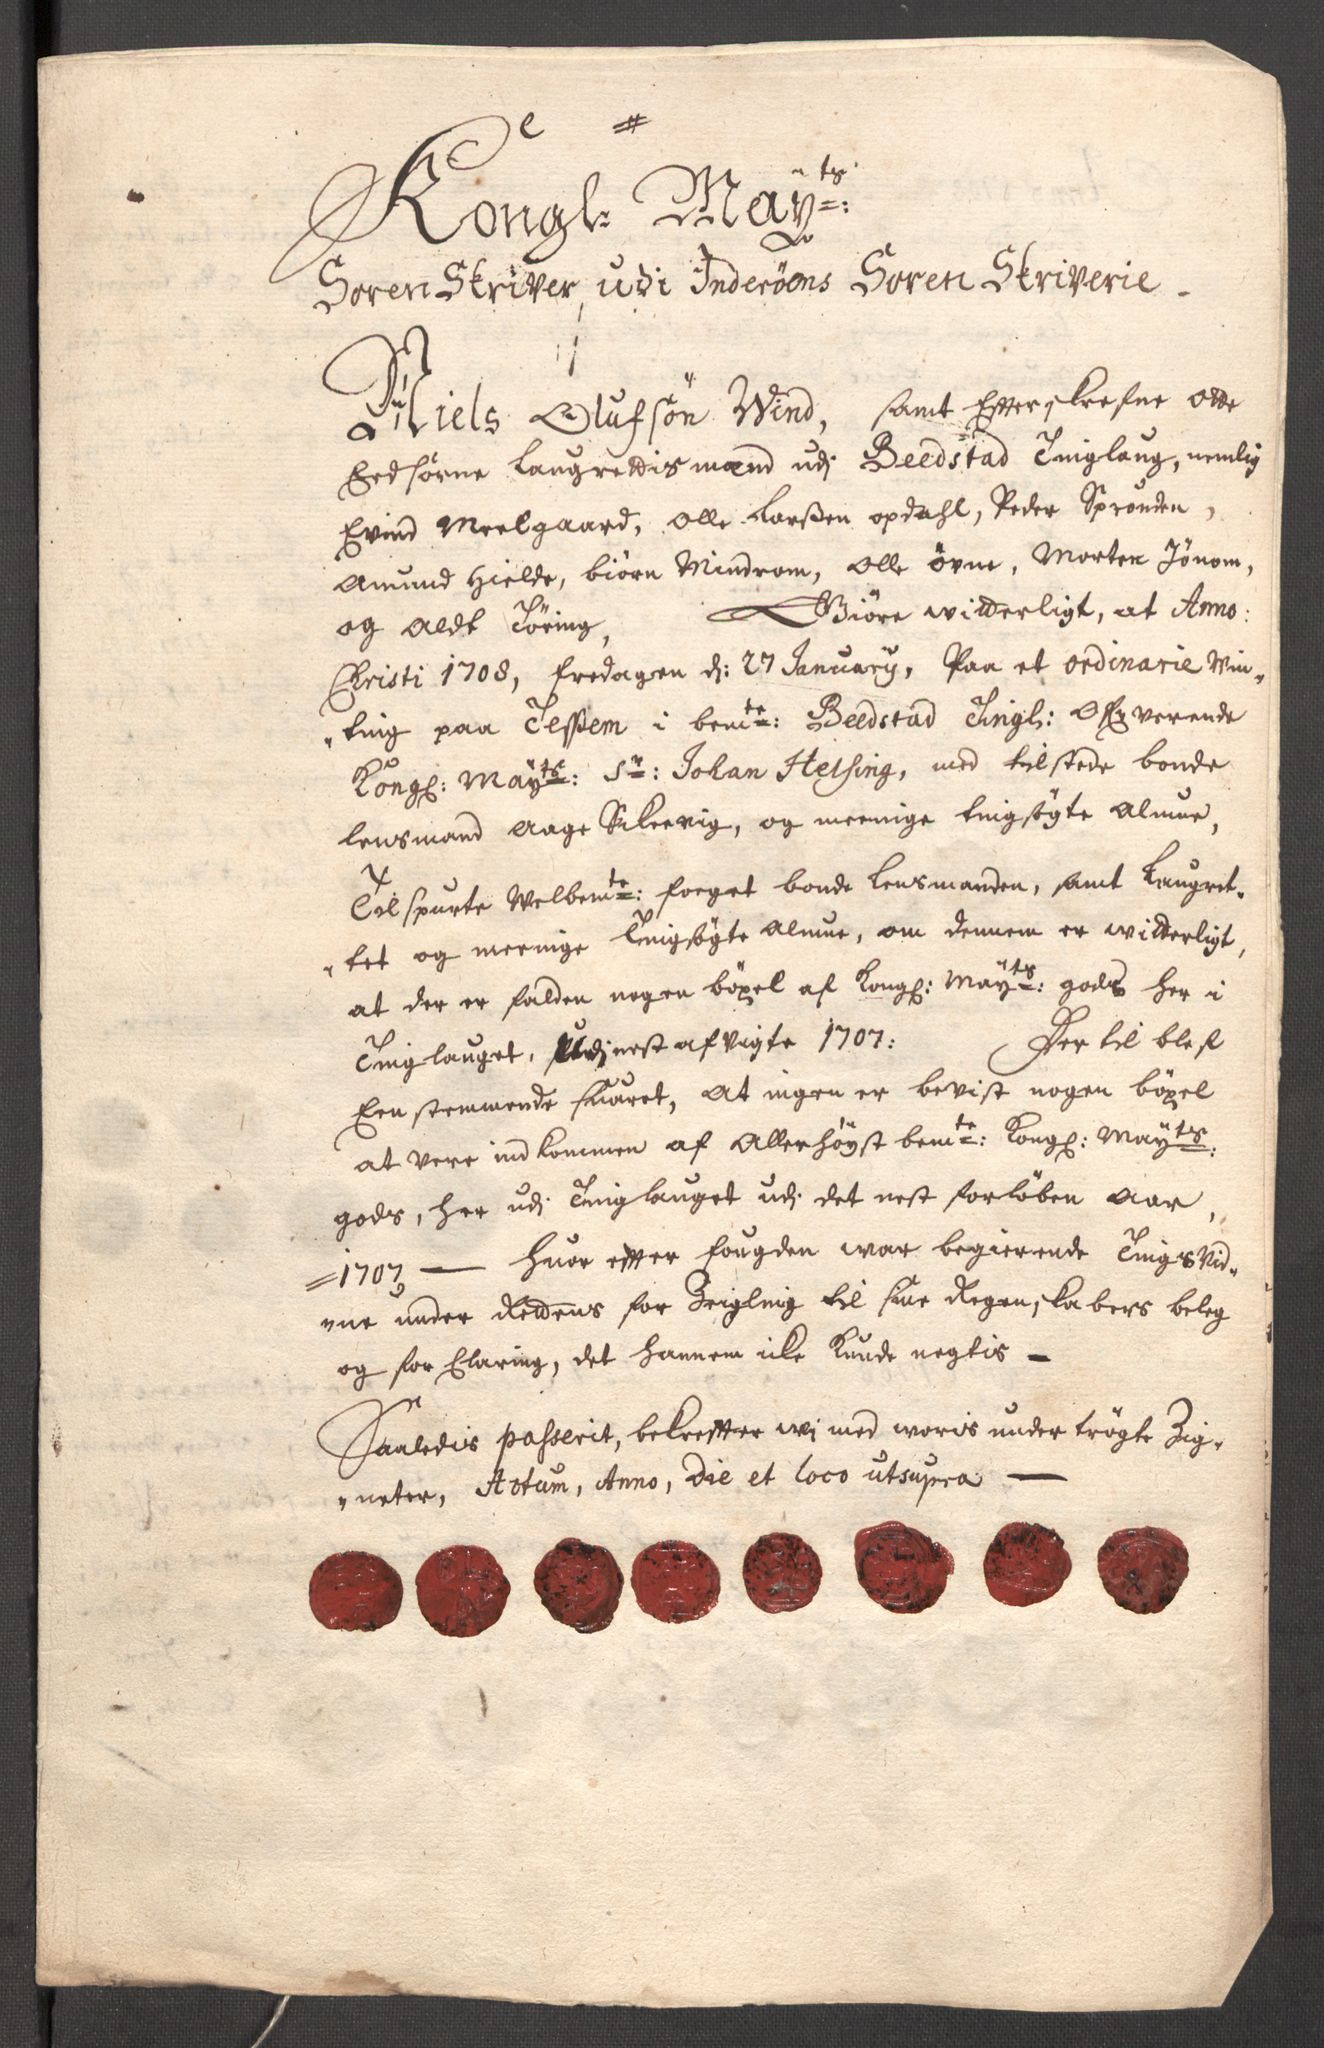 Kongl: Maÿ:ts
Soren Skriver, udi Inderöens Soren Skriverie.
Niels Olufsön Wind, samt Efterskrefne otte
Eedsorne Laugrettismænd udj Beedstad Tinglaug, nemlig
Evind Meelgaard, olle Larßen opdahl, Peder Sprouden,
Amund Hielde, biörn Mindrom, olle öxne, Morten Jönom,
og Aldt Töring, Giöre witterligt, at Anno:
Christi 1708, fredagen d: 27 January, Paa et ordinarie Win-
-ting paa Teßem i bemte: Beedstad Tingl: Ofververende
Kongl: Mayts: Sr: Johan Helsing, med tilstede bonde
lensmand Aage Sckeevig, og meenige tingsögte Almue,
Tilspurte Welbemte: foeget bonde lensmanden, samt Laugret-
-tet og meenige Tingsögte Almue, om dennem er witterligt,
at der er falden nogen böxel af Kongl: Mayts: gods her i
Tinglauget, udj nest afvigte 1707: Der til blef
Eenstemmende svaret, At ingen er bevist nogen böxel
at vere indkommen af Allerhöyst bemte: Kongl: Mayts:
gods, her udj Tinglauget udj det nest forlöben Aar,
=1707 — huor efter fougden war begierende Tingsvid-
-ne under Rettens for Zeigling til sine Regenskabers beleg
og for Claring, det hannem icke kunde negtis -
Saaledis passerit, bekrefter wj med woris under trögte Zig-
-neter, Actum, Anno, Die et loco utsupra —